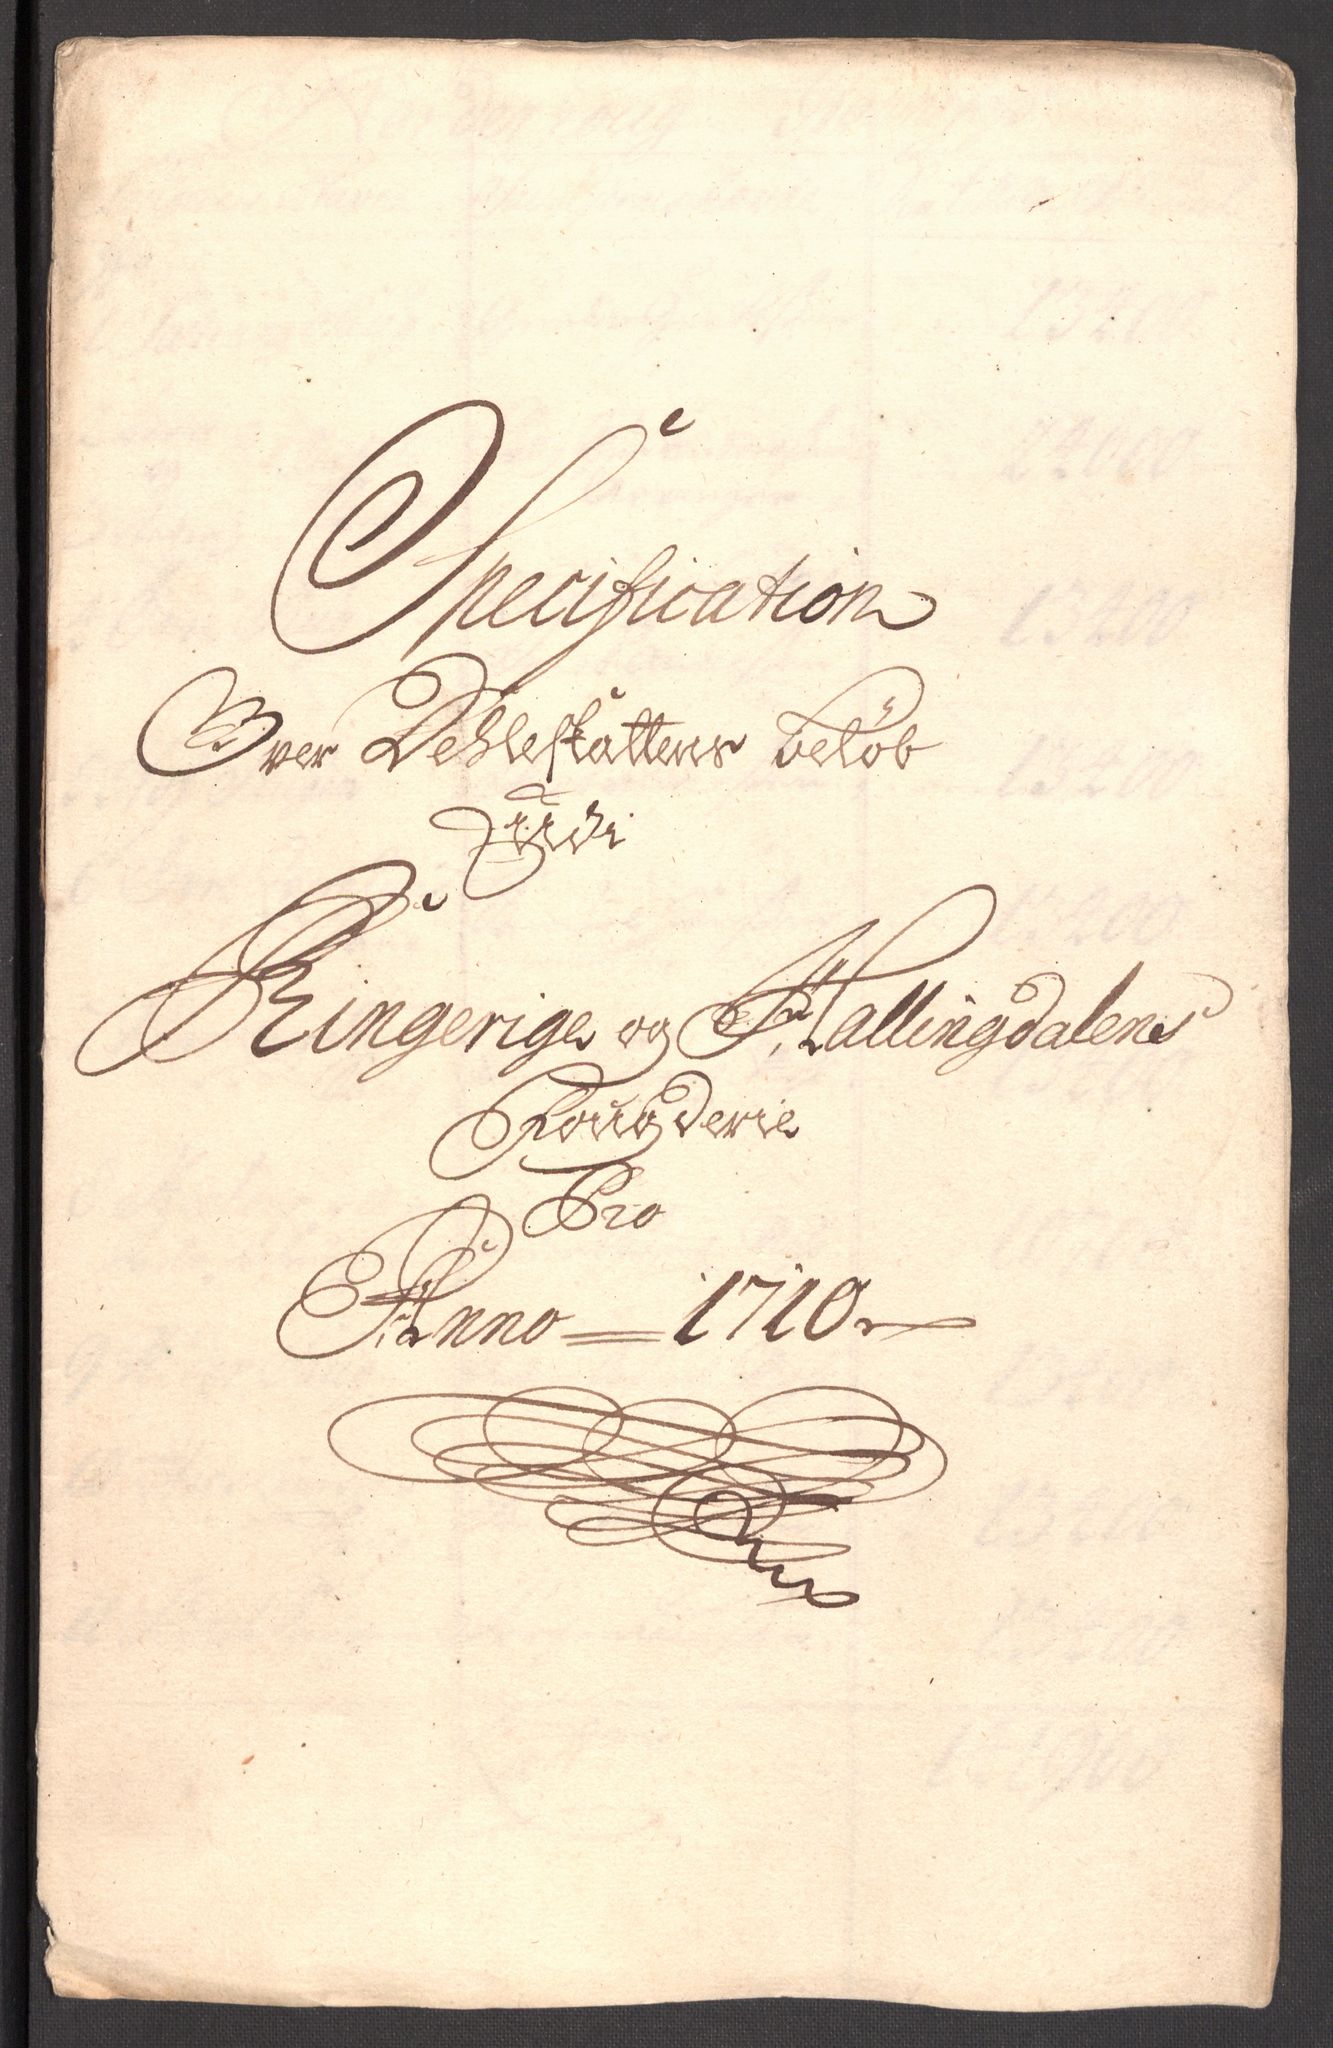 Specification
Over Dehleskattens beløb
Udi
Ringerige og Hallingdalens
Fougderie
Pro
Anno 1710